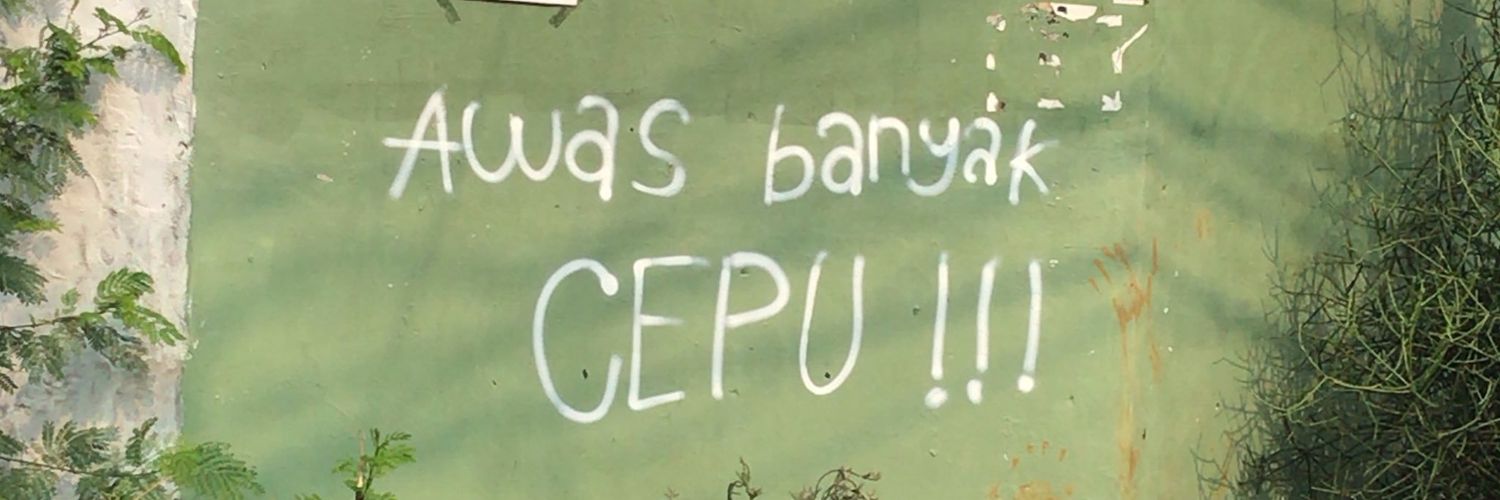 Awas banyak
CEPU !!!